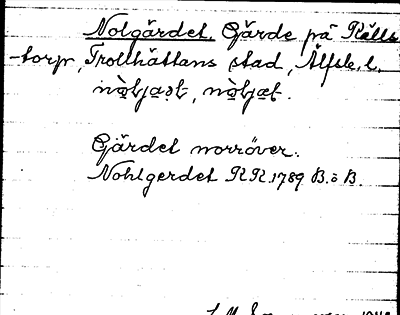 Nolgärdet, Gärde på Källs
-torp, Trollhättans stad, Älfsb. l.
Gärdet norröver.
Nohlgerdet RR. 1789 B. ö B.